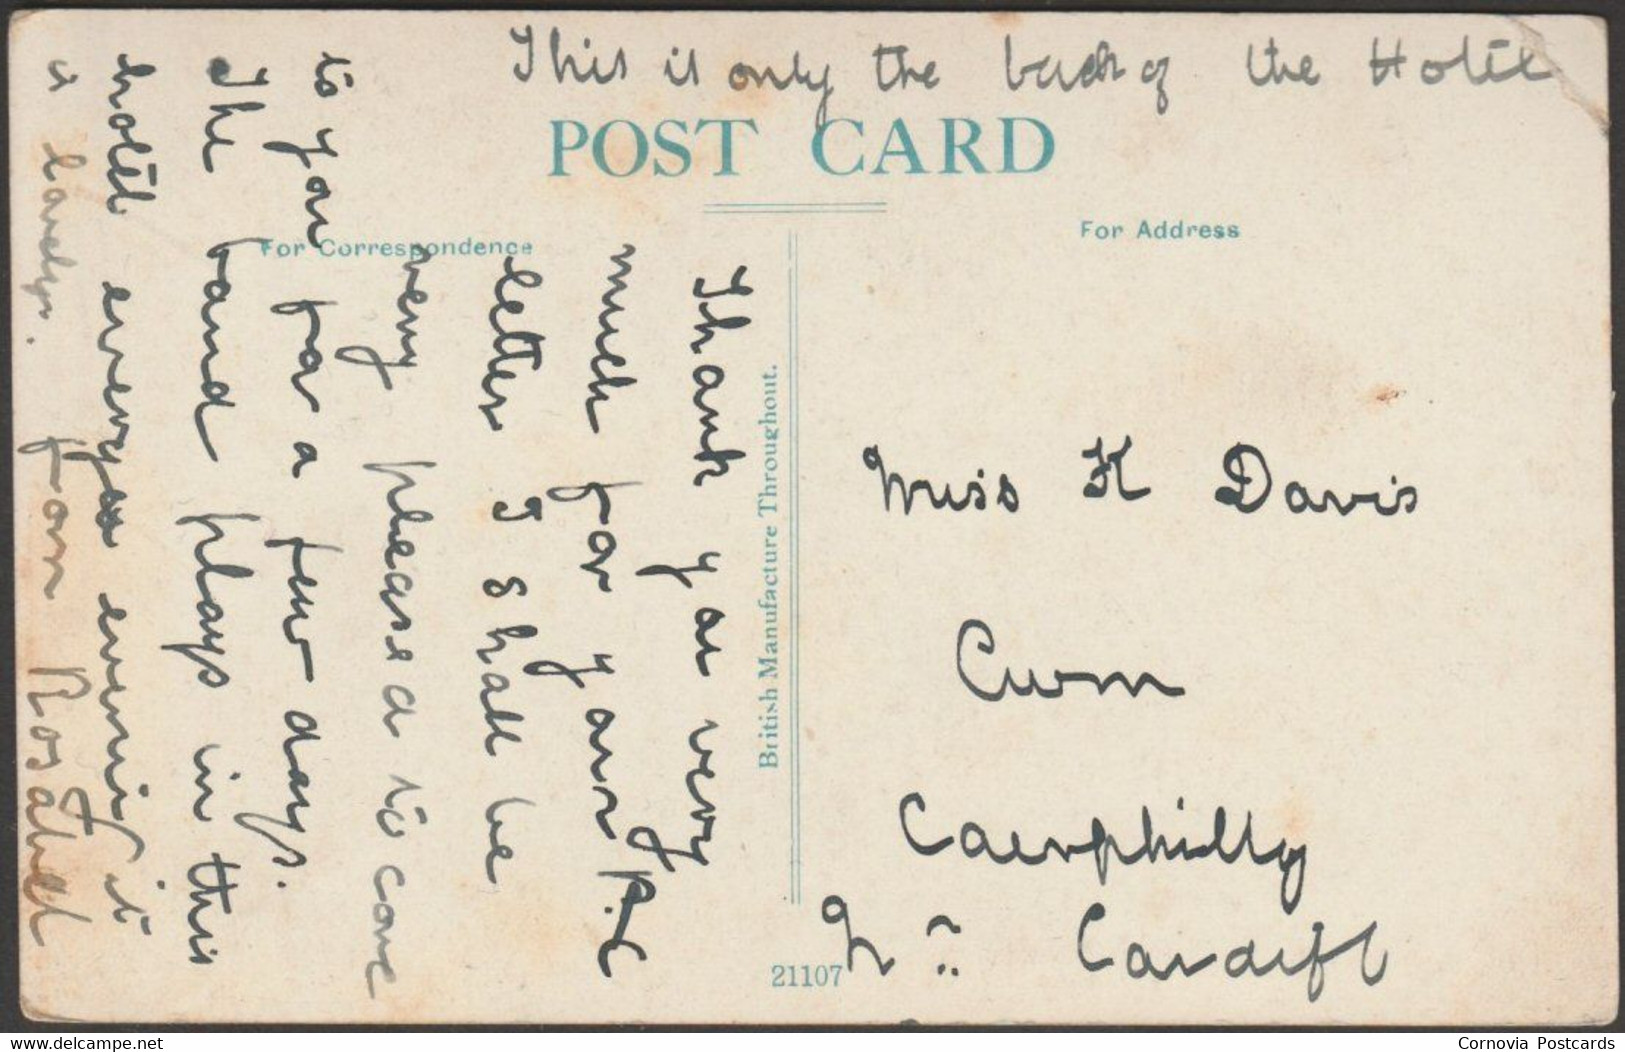 This is only the back of the Hotel
POST CARD
For Correspondence
For Address
Thank you very
much for your P.C
letter I shall be
very pleased to come
to you for a few days.
The band plays in this
hotel every evening it
is lovely. from Rosabel
British Manufacture Throughout.
Miss K Davis
Cwm
Caerphilly
Nr Cardiff
21107
www.delcampe.net
Cornovia Postcards